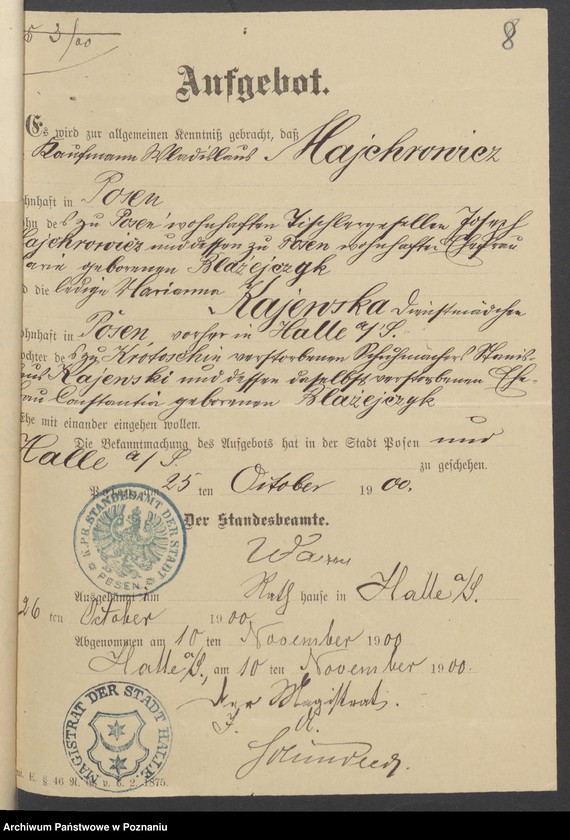 3/00
8
Aufgebot.
Es wird zur allgemeinen Kenntniß gebracht, daß
Kaufmann Wladislaus Majchrowicz
ohnhaft in Posen
ohn des zu Posen wohnhaften Tischlergesellen Joseph
ajchrowicz und dessen zu Posen wohnhaften Ehefrau
arie geborenen Blażejczyk
d die ledige Marianna Rajewska Dienstmädchen
ohnhaft in Posen, vorher in Halle a/S.
ochter des zu Krotoschin verstorbenen Schuhmachers Stanis-
aus Rajewski und dessen daselbst verstorbenen Ehe-
au Constantia geborenen Blażejczyk
Ehe mit einander eingehen wollen.
Die Bekanntmachung des Aufgebots hat in der Stadt Posen und
Halle a/S. zu geschehen.
am 25 ten October 1900.
Der Standesbeamte.
K. PR. STANDESAMT DER STADT POSEN.
Ausgehängt am Rathhause in Halle a/S.
26 ten October 1900
Abgenommen am 10 ten November 1900
Halle a/S., am 10 ten November 1900.
Der Magistrat.
MAGISTRAT DER STADT HALLE
E. § 46 R. v. 6. 2. 1875.
Archiwum Państwowe w Poznaniu